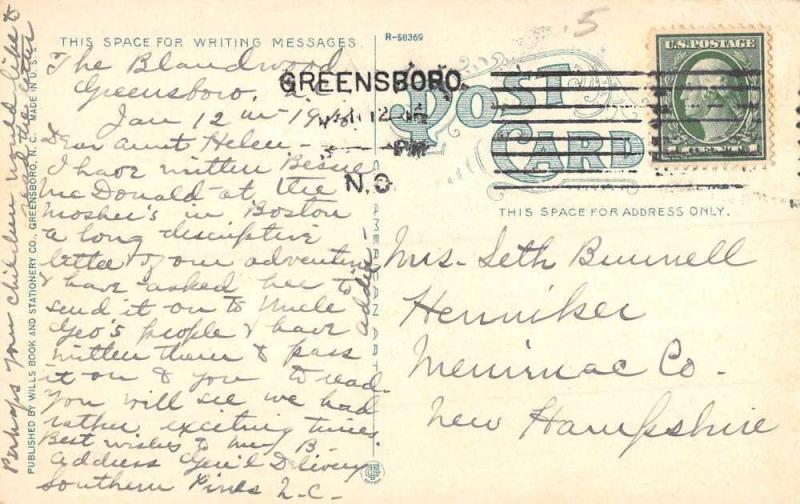 THIS SPACE FOR WRITING MESSAGES.
R-58369
The Blandwood
Greensboro, N.C.
Jan 12th 19
Dear Aunt Helen -
I have written Bessie
McDonald at the
Mosher's in Boston
a long descriptive
letter of our adventures
& have asked her to
send it on to Uncle
Geo's people & have
written them to pass
it on to you to read.
You will see we had
rather exciting times.
Best wishes to Mr B.
Address Gen'l Delivery
Southern Pines N.C.
Perhaps your children would like to
read the letter
PUBLISHED BY WILLS BOOK AND STATIONERY CO., GREENSBORO, N. C. MADE IN U.S.A.
AMERICAN ART
GREENSBORO.
JAN 12
PM
N.C.
POST
CARD
U.S. POSTAGE
1 CENT 1
.5
THIS SPACE FOR ADDRESS ONLY.
Mrs. Seth Bunnell
Henniker
Merrimac Co.
New Hampshire